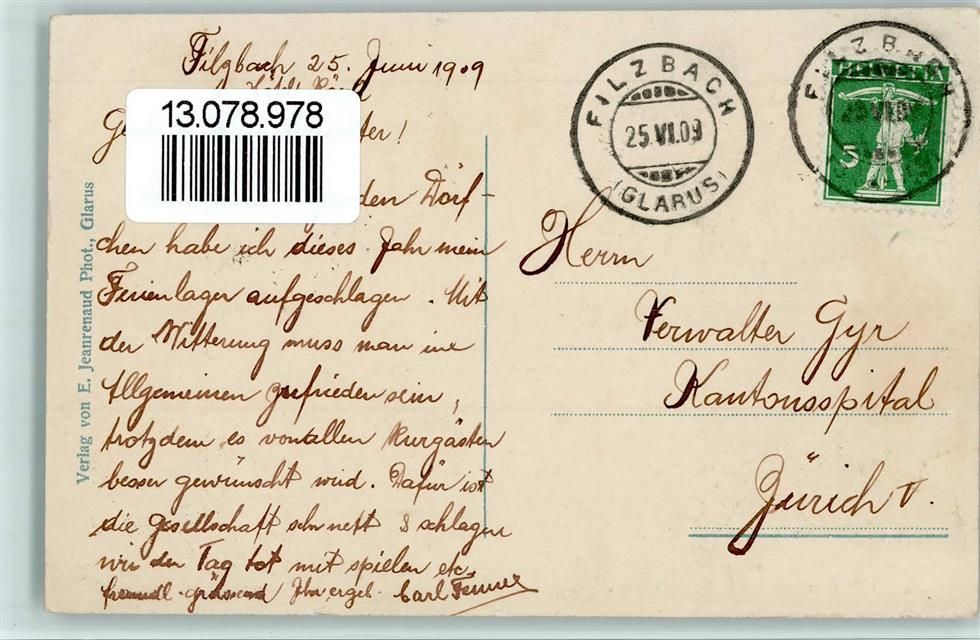 Filzbach 25. Juni 1909
13.078.978
Ge ter!
den Dörf-
chen habe ich dieses Jahr mein
Ferienlager aufgeschlagen. Mit
der Witterung muss man im
Allgemeinen zufrieden sein,
trotzdem es von allen Kurgästen
besser gewünscht wird. Dafür ist
die Gesellschaft sehr nett & schlagen
wir den Tag tot mit spielen etc.
freundl. grüssend Ihr ergeb. Carl
Verlag von E. Jeanrenaud Phot., Glarus
FILZBACH
25.VI.09
(GLARUS)
FILZBACH
25.VI.09
HELVETIA
5
Herrn
Verwalter Gyr
Kantonsspital
Zürich V.